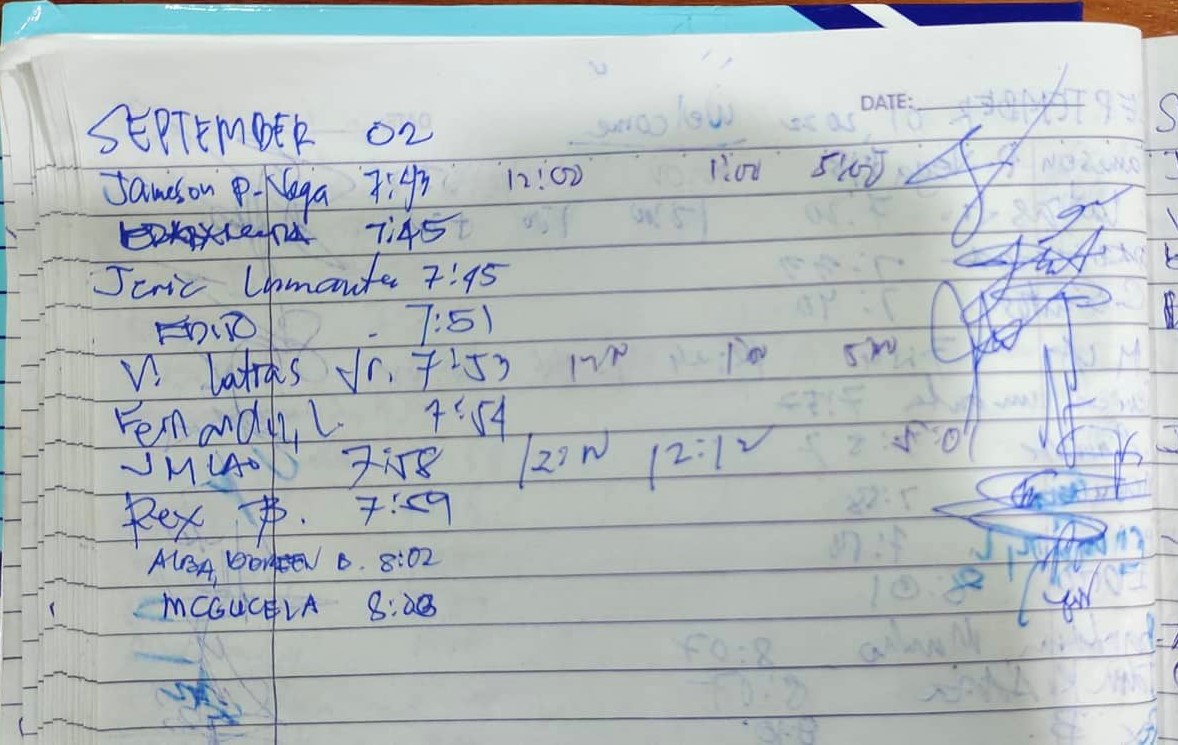 DATE:
SEPTEMBER 02
Jameson P. Vega 7:43 12:00 1:00 5:00
7:45
Jeric 7:45
7:51
V. Latras Jr. 7:53 12N 1:00 5:00
Fernandez, L. 7:54
JMLAO 7:58 12:N 12:12 5:01
Rex B. 7:59
ALBA, DOREEN D. 8:02
MCGUCELA